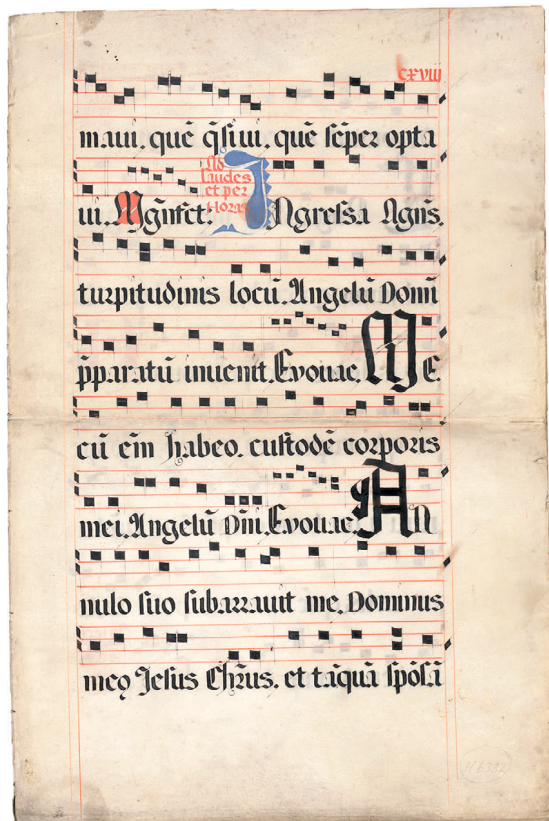 cxviii
maui. quē q̄siui. quē sēper opta
ui. Mḡnifct:
Ad
laudes
et per
Horas
Ingressa Agn̄s.
turpitudinis locū. Angelū Domī
p̄paratū inuenit. Evouae. ME
cū eīm habeo. custodē corporis
mei. Angelū Dn̄i. Evouae. AN
nulo suo subarrauit me. Dominus
meꝯ Jesus Chr̄us. et tāquā spōsā